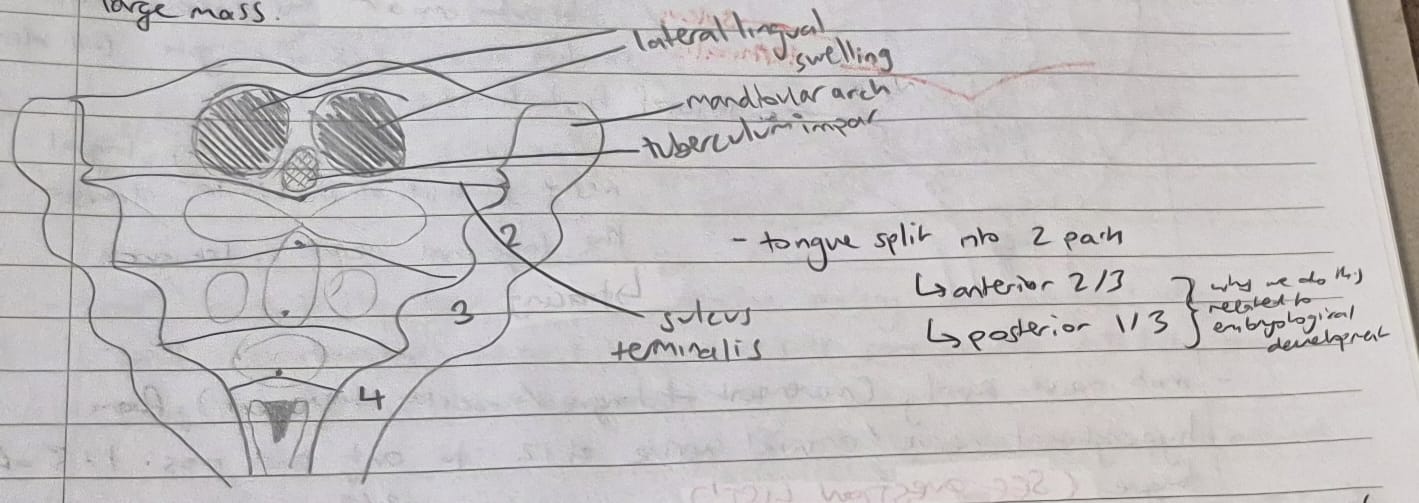 large mass.
lateral lingual
swelling
mandibular arch
tuberculum impar
2
- tongue split into 2 parts
↳ anterior 2/3
↳ posterior 1/3
why we do this
related to
embryological
development
3
sulcus
terminalis
4